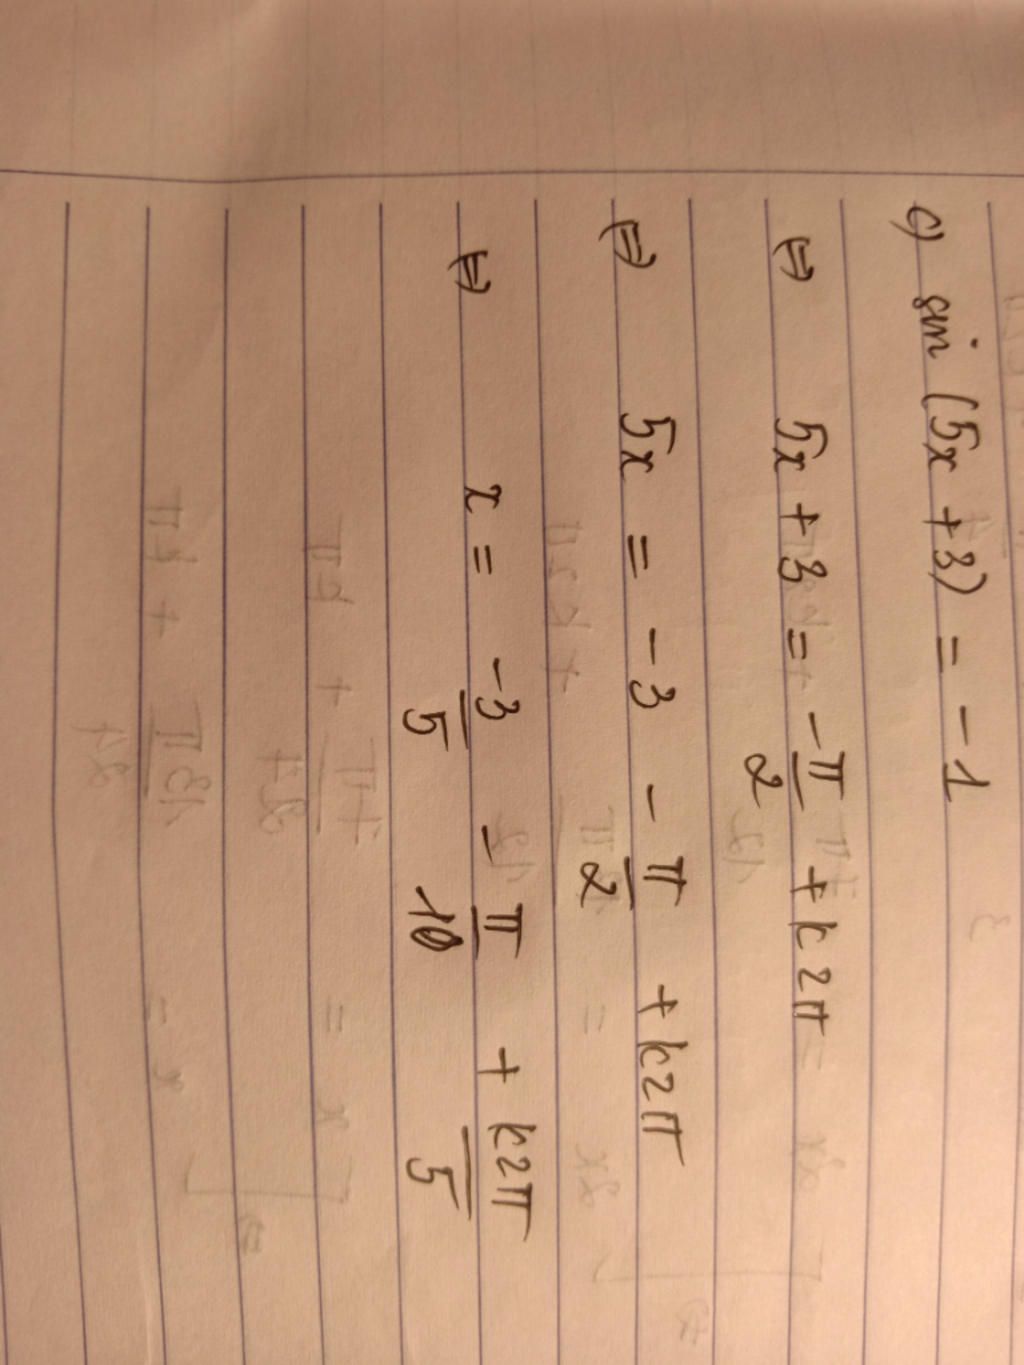 c) sin (5x + 3) = - 1
⇔ 5x + 3 = - π/2 + k2π
⇔ 5x = - 3 - π/2 + k2π
⇔ x = -3/5 - π/10 + k2π/5